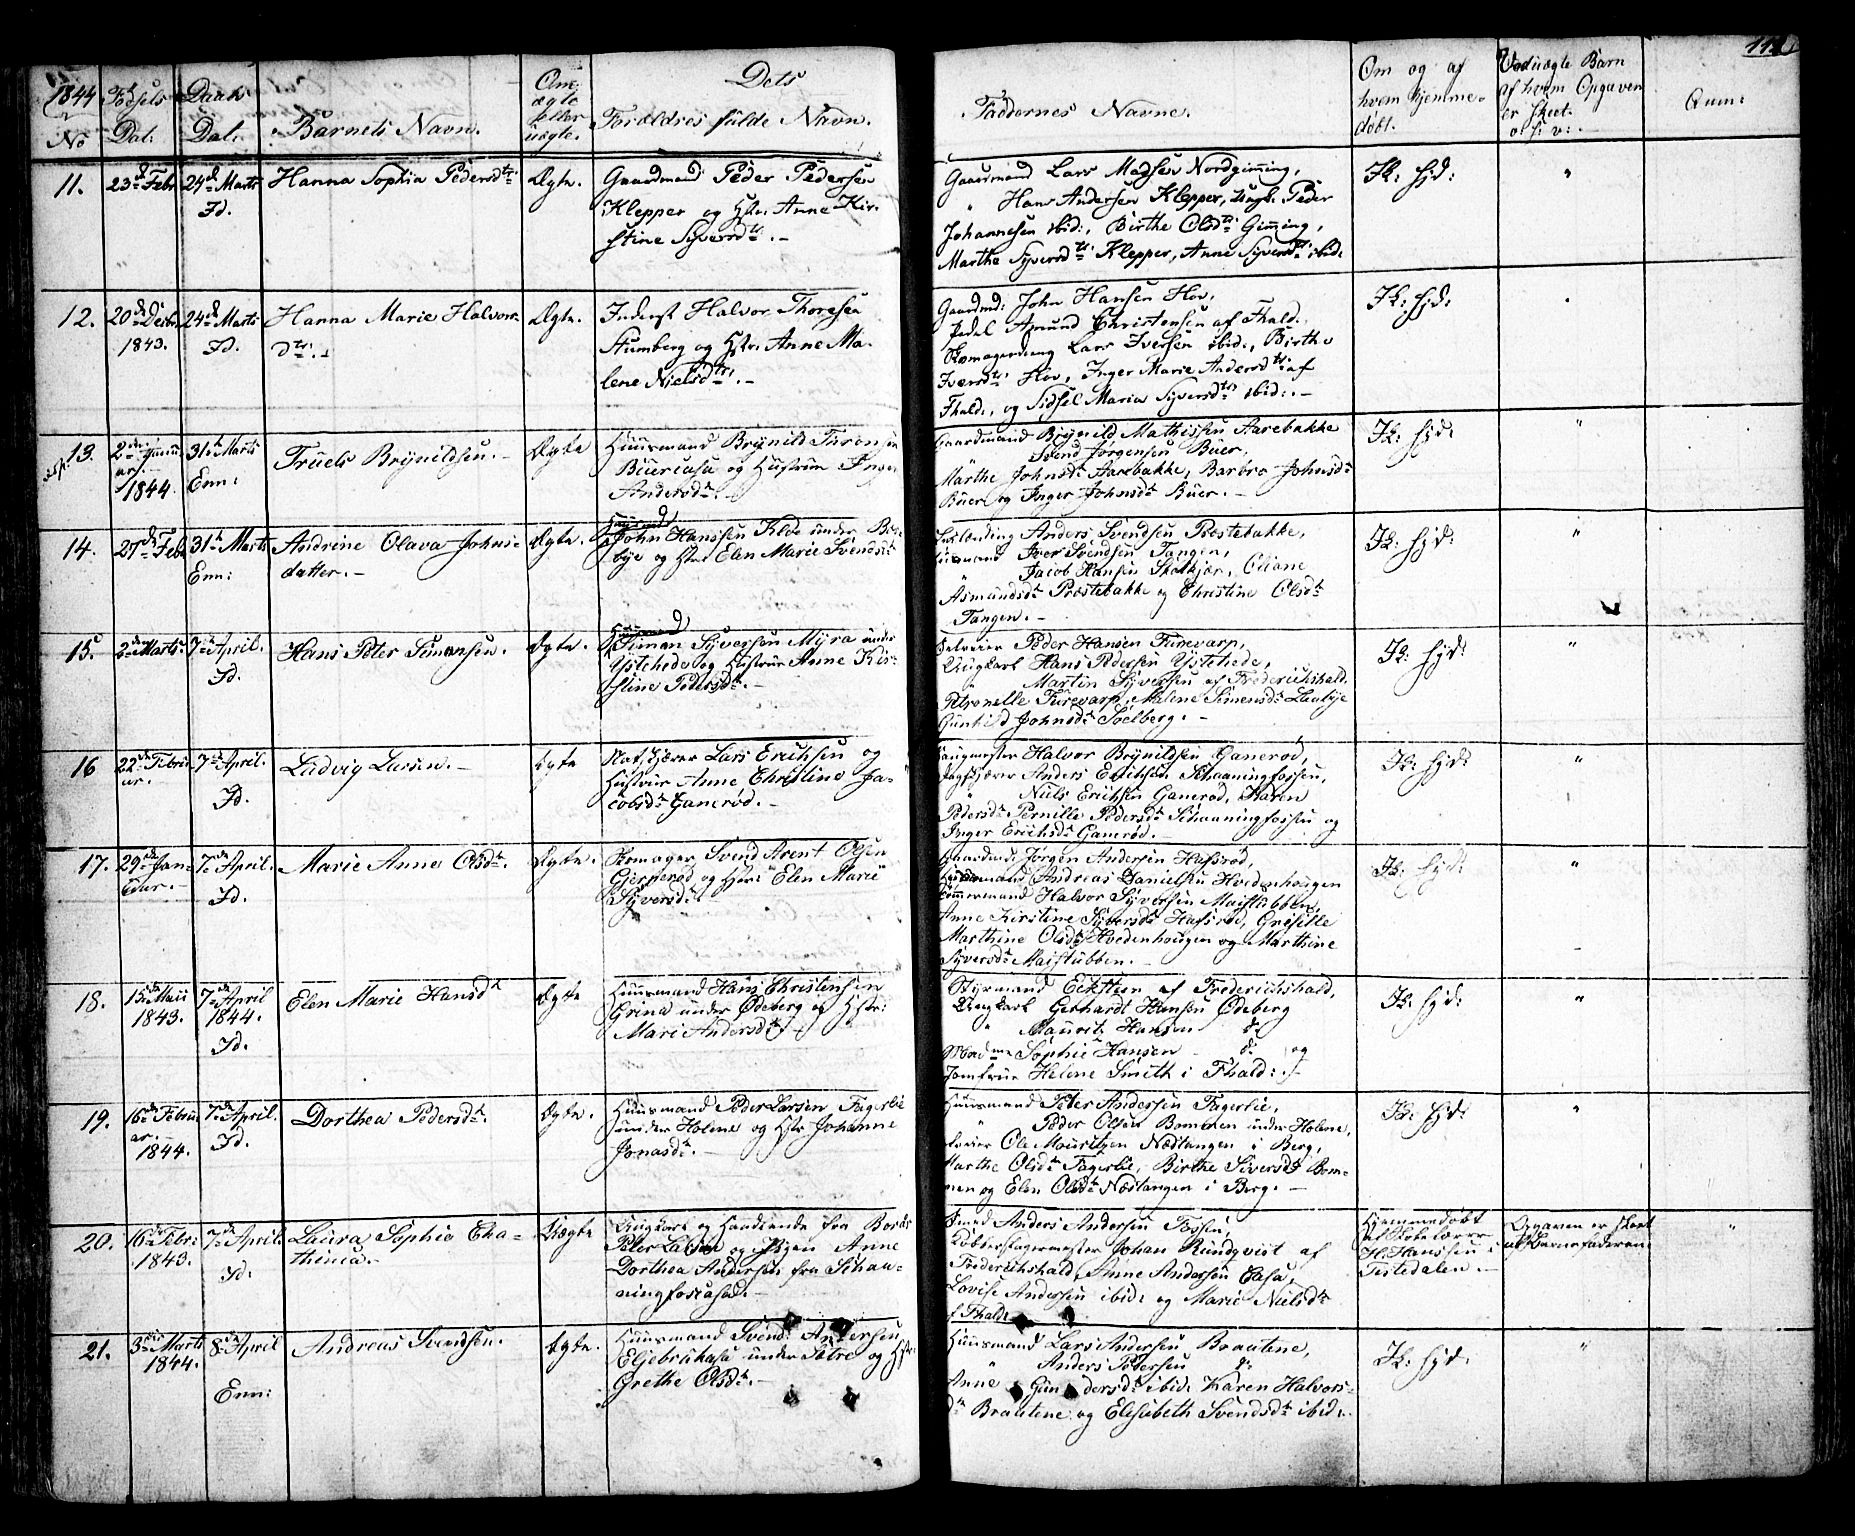 1844 Fødsels Daab
No Dat: Dat. Barnets Navn. Om ægte eller uægte. Dets Forældres fulde Navn. Faddernes Navne. Om og af hvem hjemmedøbt. Ved uægte Barn af hvem Opgaven er skeet. o: s: v: Anm:
11. 23de Febr 24de Marts Id. Hanna Sophia Pedersdtr: Ægte.
Gaardmand Peder Pedersen
Klepper og Hstr. Anne Kir-
stine Syversdtr. -
Gaardmand Lars Madsen Nordgimming,
" Hans Andersen Klepper, Ungk. Peder
Johannesen ibid:, Birthe Olsdtr Gimming,
Marthe Syversdtr: Klepper, Anne Syversdtr: ibid.
K: hjd: "
12. 20de Decbr 1843. 24de Marts Id. Hanna Marie Halvors-
dtr:. Ægte.
Inderst Halvor Thoresen
Stumberg og Hstr. Anne Ma-
lene Nielsdtr. -
Gaardmd: John Hansen Hov,
Pedel Amund Christensen af Fhald.
Skomagerdreng Lars Iversen ibid:, Birthe
Iversdtr Hov, Inger Marie Andersdtr: af
Fhald:, og Sidsel Maria Syversdtr ibid:. -
K: hjd: "
13. 2den Januar. 1844. 31te Marts Enn: Truels Brynildsen. - Ægte
Huusmand Brynild Taronsen
Buercasa og Hustrue Inger
Andersdtr. -
Gaardmand Brynild Mathissen Aarebakke
Svend Jørgensen Buer,
Marthe Johnsdtr Aarebakke, Barbro Johnsdtr
Buer og Inger Johnsdtr Buer. -
K: hjd: "
14. 27de Feb 31te Marts Enn: Andrine Olava Johns-
datter. - Ægte.
Huusmd
John Hanssen Kleve under
bye og Hstr Elen Marie Svendsdtr
Anders Svendsen Prestebakke,
Huusmand Iver Svendsen Tangen,
" Jacob Hansen Skolkjær,
Asmundsdtr Prestebakke og Christine Olsdtr
Tangen. -
K: hjd: "
15. 2den Marts 7de April. Id. Hans Peter Simonsen. Ægte.
Huusmand
Simon Syversen Myra under
Ystehede og Hustrue Anne Kir-
stine Pedersdtr. -
Selveier Peder Hansen Furevarp,
Ungkarl Hans Pedersen Ystehede,
" Martin Syversen af Frederichshald.
Petronelle Furevarp, Malene Simensdtr
Gunhild Johnsdtr Soelberg. -
K: hjd: "
16 22de Februar. - 7de April. Id. Ludvig Larsen. - Ægte
Lars Erichsen og
Hustrue Anne Christine Ja-
cobsdtr Ganerød. -
Halvor Brynildsen Ganerød,
Anders Erichsen Schaaningfossen,
" Niels Erichsen Ganerød, Karen
Pedersdtr Pernille Pedersdtr Schaaningfossen og
Inger Erichsdtr Ganerød. -
K: hjd: "
17. 29de Januar. - 7de April. Id. Marie Anne Olsdtr. Ægte.
Skomager Svend Arent Olsen
Gjerperød og Hstr: Elen Marie
Syversdtr
Gaardmd: Jørgen Andersen Hafsrød,
Huusmand Andreas Danielsen Hvedenhougen
Tømmermand Halvor Syversen Maistubben,
Anne Kirstine Syversdtr Hafsrød, Grøsille
Marthine Olsdtr Hvedenhougen og Marthine
Syversdtr Maistubben. -
K: hjd: "
18. 15de Maii 1843. 7de April 1844. Id. Elen Marie Hansdtr Ægte
Huusmand Hans Christensen
Grina under Ødeberg og Hstr:
Mari Andersdtr. -
Styrmand Eckstein af Frederichshald,
Ungkarl Gerhardt Hansen Ødeberg
" Mauritz Hansen do
Madme Sophie Hansen - do og
Jomfrue Helene Smith i Fhald: . -
K: hjd: "
19. 16de Februar. - 1844. 7de April. Id. Dorthea Pedersdtr. Ægte.
Huusmand Peder Larsen Fagerlie
under Holene og Hstr Johanne
Jonasdtr. -
Huusmand Peter Andersen Fagerlie,
" Peder Olsen Bommen under Holene,
Selveier Ole Mouritzen Næstangen i Berg,
Marthe Olsdtr Fagerlie, Birthe Siversdtr Bom-
men og Elen Olsdtr Næstangen i Berg. -
K: hjd: "
20. 16de Febr 1843. 7de April Id. Laura Sophie Cha-
thinca. - Uægte
Ungkarl og Handlende fra Borås
Peter Larsen og Pigen Anne
Dorthea Andersen fra Schaa-
ningfoscasa. -
Smed Anders Andersen Fossen,
Kobberslagermester Johan Rundqvist af
Frederichshald, Anne Andersen Casa,
Lovise Andersen ibid: og Marie Nielsdtr
af Fhald:
Hjemmedøbt
af Skolelærer
H. Hanssen i
Tistedalen. -
Opgaven er skeet
af Barnefaderen. "
21. 3die Marts 1844. 8de April Enn: Andreas Svendsen. Ægte.
Huusmand Svend Andersen
under Sætre og Hstr:
Grethe Olsdtr. -
Huusmand Lars Andersen Braatene,
" Anders Pedersen do
Anne Gundersdtr ibid. Karen Halvors-
dtr Braatene og Elisabeth Svendsdtr ibid:.
K: hjd. "